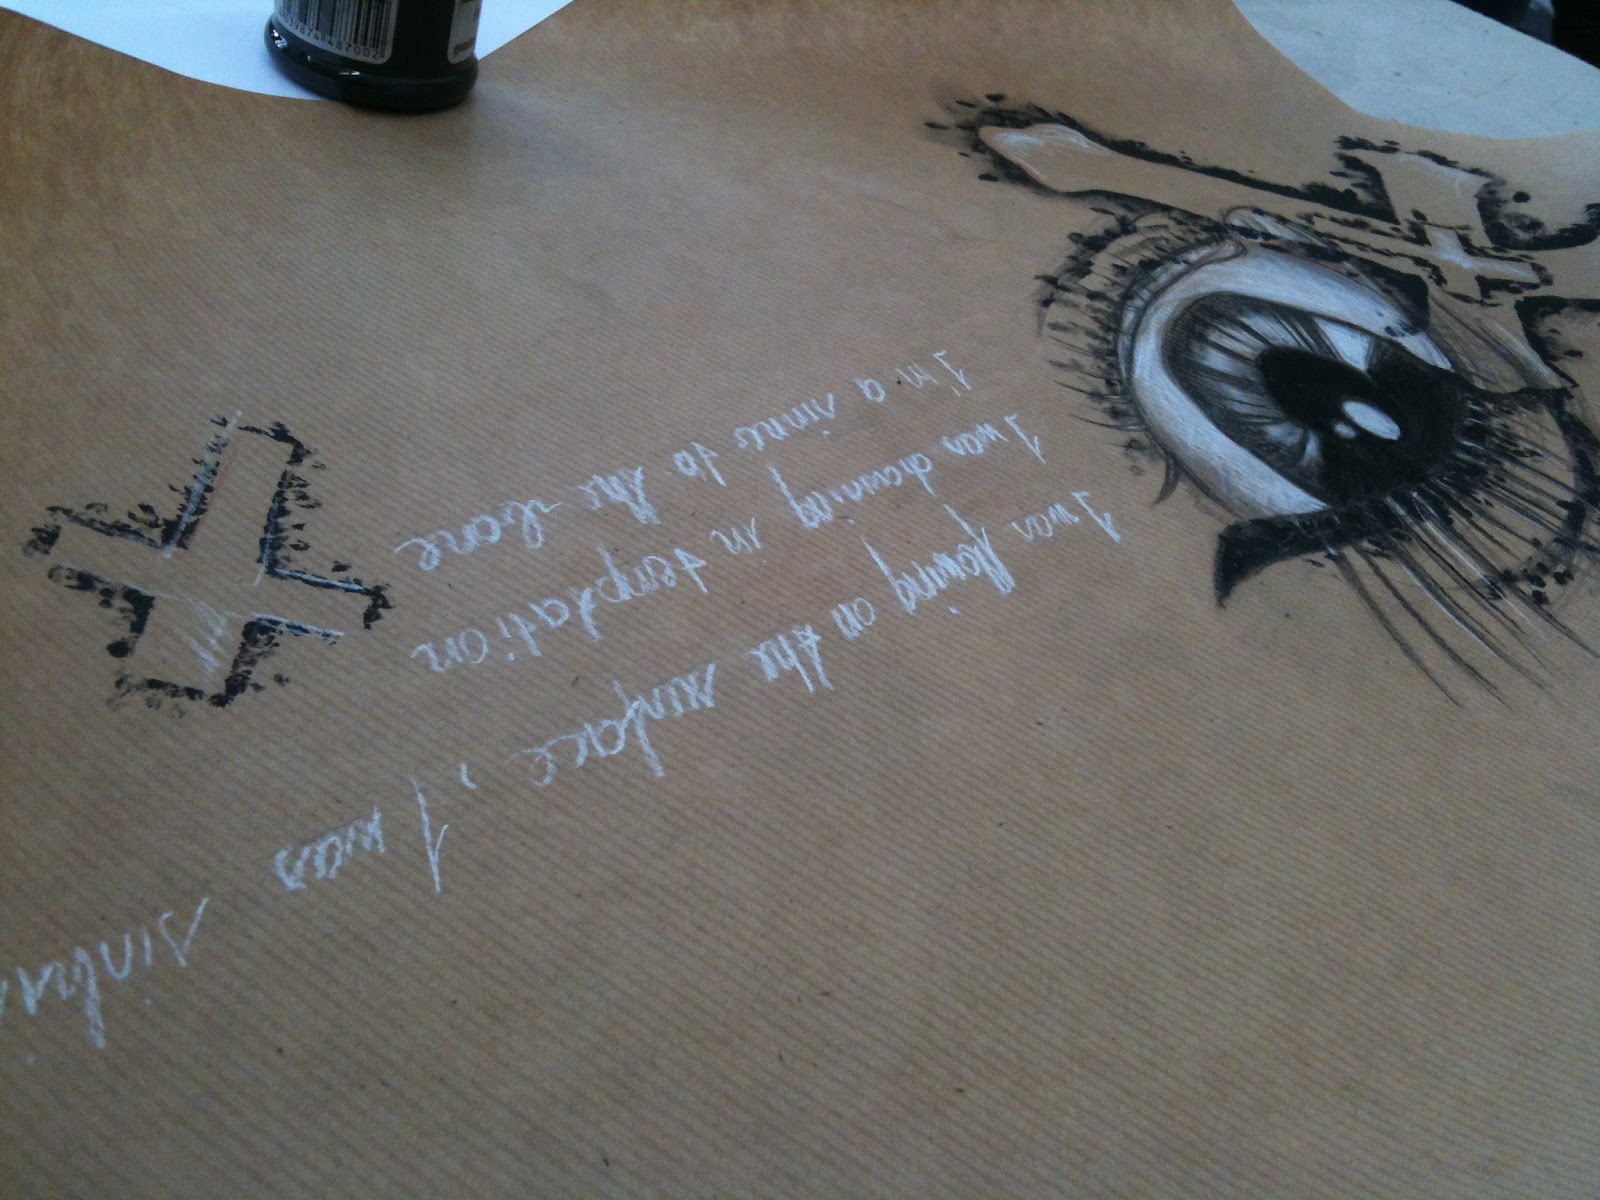 I was flowing on the surface, I was
I was drowning in temptation
I'm a sinner to the bone